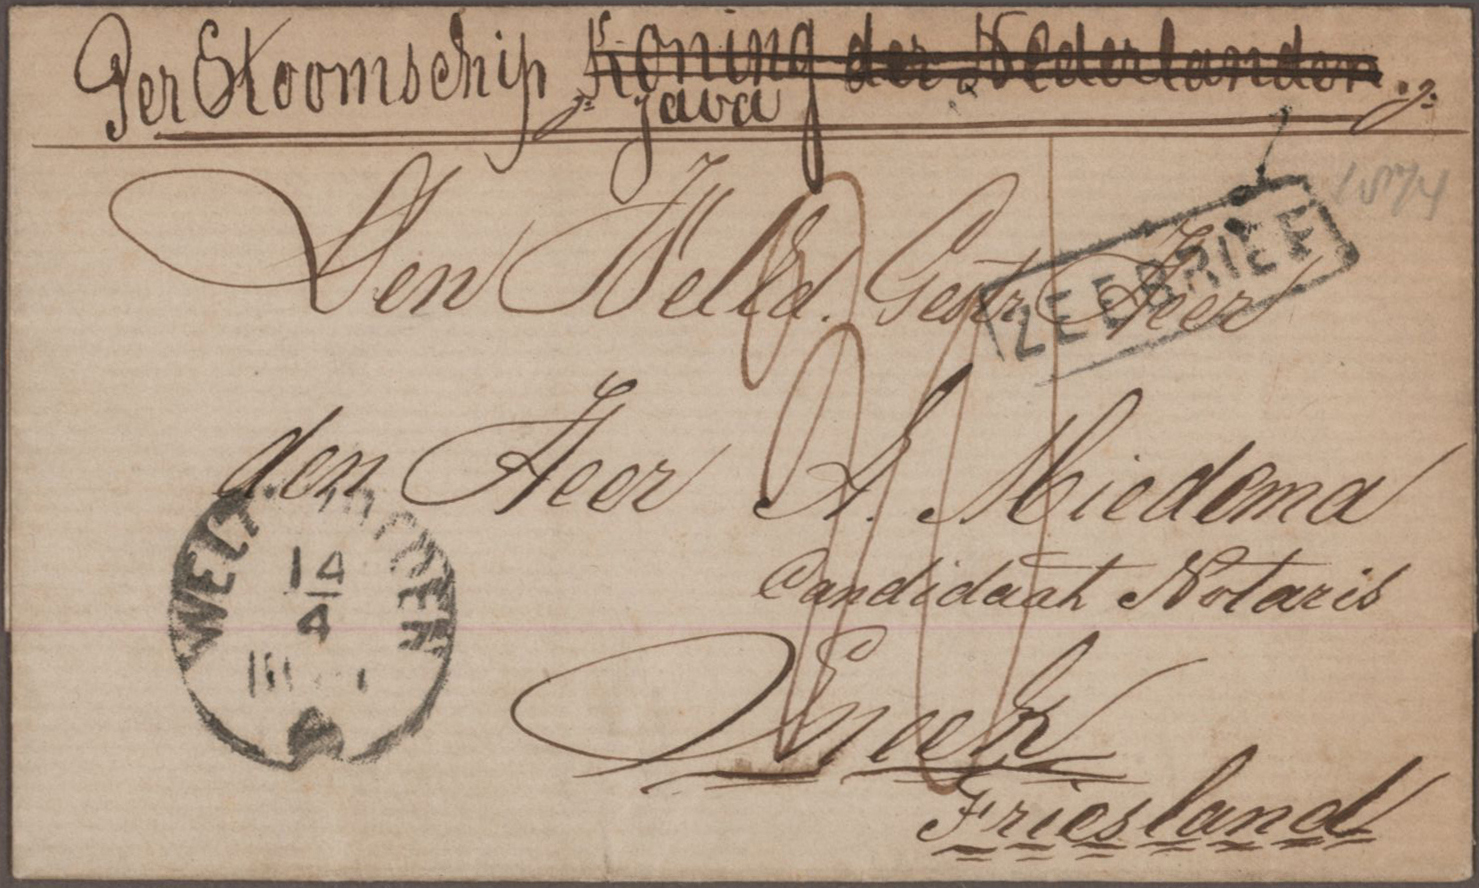 Per Stoomschip Koning der Nederlanden
Java
1874
ZEEBRIEF
Den WelEd. Gestr. Heer
den Heer A. Miedema
Candidaat Notaris
Sneek
Friesland
WELTEVREDEN
14
4